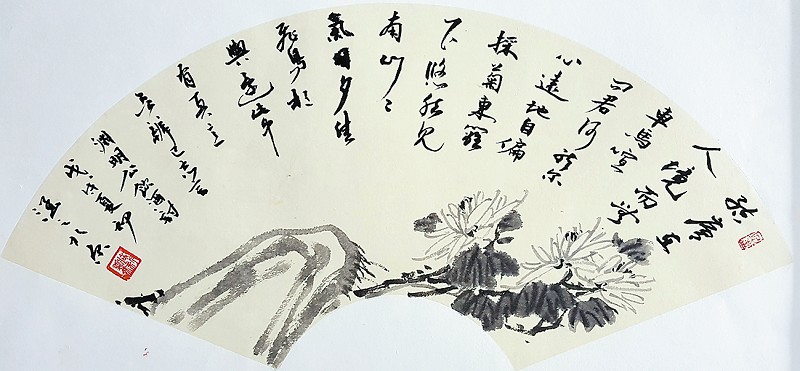 结庐在
人境而無
車馬喧
问君何能尔
心遠地自偏
採菊東籬
下悠然見
南山〻
氣日夕佳
飛鳥相
與還此中
有真意
辨已忘言
淵明公飲酒詩
戊戌夏